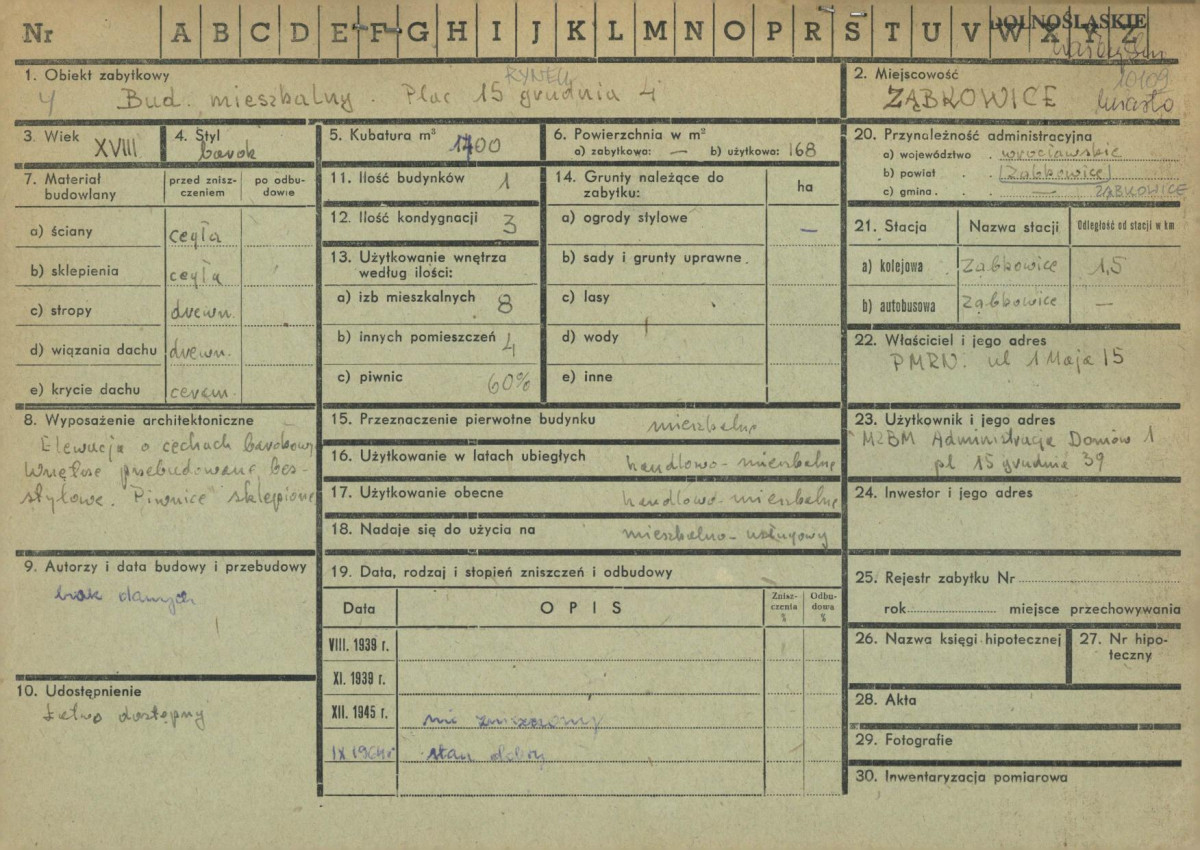 Nr A B C D E F G H I J K L M N O P R S T U V W X Y Z
DOLNOŚLĄSKIE
10109
miasto
1. Obiekt zabytkowy
RYNEK
4 Bud. mieszkalny. Plac 15 grudnia 4
2. Miejscowość
ZĄBKOWICE
3. Wiek XVIII
4. Styl
barok
5. Kubatura m³ 1700
6. Powierzchnia w m²
a) zabytkowa: — b) użytkowa: 168
7. Materiał budowlany
przed zniszczeniem
po odbudowie
a) ściany cegła
b) sklepienia cegła
c) stropy drewn.
d) wiązania dachu drewn.
e) krycie dachu ceram.
8. Wyposażenie architektoniczne
Elewacja o cechach barokowych
Wnętrze przebudowane bez-
stylowe. Piwnice sklepione
9. Autorzy i data budowy i przebudowy
brak danych
10. Udostępnienie
Łatwo dostępny
11. Ilość budynków 1
12. Ilość kondygnacji 3
13. Użytkowanie wnętrza
według ilości:
a) izb mieszkalnych 8
b) innych pomieszczeń 4
c) piwnic 60%
14. Grunty należące do
zabytku:
ha
a) ogrody stylowe —
b) sady i grunty uprawne
c) lasy
d) wody
e) inne
15. Przeznaczenie pierwotne budynku mieszkalne
16. Użytkowanie w latach ubiegłych handlowo-mieszkalne
17. Użytkowanie obecne handlowo-mieszkalne
18. Nadaje się do użycia na mieszkalno-usługowy
19. Data, rodzaj i stopień zniszczeń i odbudowy
Data OPIS Znisz-
czenia
%
Odbu-
dowa
%
VIII. 1939 r.
XI. 1939 r.
XII. 1945 r. nie zniszczony
IX 1964 r stan dobry
20. Przynależność administracyjna
a) województwo . wrocławskie
b) powiat . . Ząbkowice
c) gmina . . — ZĄBKOWICE
21. Stacja Nazwa stacji Odległość od stacji w km
a) kolejowa Ząbkowice 1,5
b) autobusowa Ząbkowice —
22. Właściciel i jego adres
PMRN. ul 1 Maja 15
23. Użytkownik i jego adres
MZBM Administracja Domów 1
pl 15 grudnia 39
24. Inwestor i jego adres
25. Rejestr zabytku Nr
rok miejsce przechowywania
26. Nazwa księgi hipotecznej
27. Nr hipo-
teczny
28. Akta
29. Fotografie
30. Inwentaryzacja pomiarowa